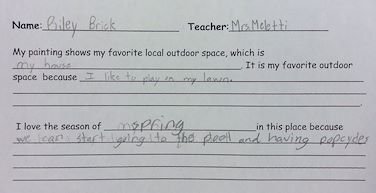 Name: Riley Brick Teacher: Mrs Meletti
My painting shows my favorite local outdoor space, which is
my house. It is my favorite outdoor
space because I like to play in my lawn.
I love the season of spring in this place because
we can start going to the pooll and having popcycles